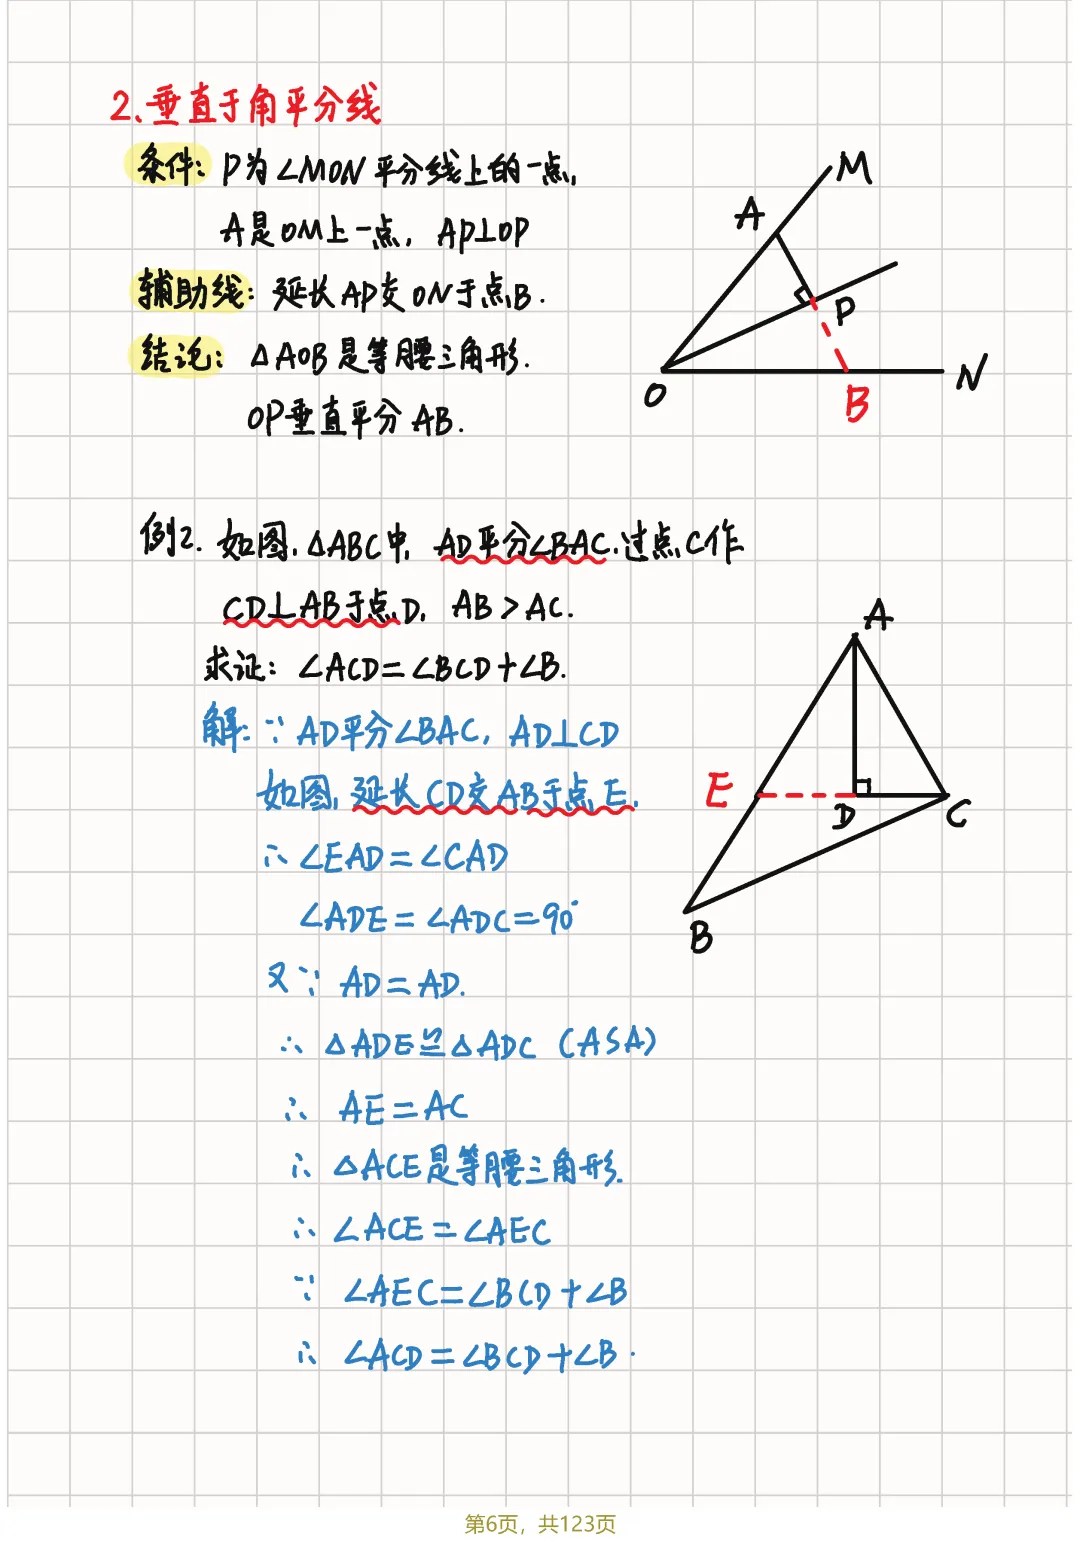 2、垂直于角平分线
条件: P为∠MON平分线上的一点,
A是OM上一点, AP⊥OP
辅助线: 延长AP交ON于点B.
结论: △AOB是等腰三角形.
OP垂直平分AB.
M
A
P
O
B
N
例2. 如图,△ABC中, AD平分∠BAC.过点C作
CD⊥AB于点D, AB>AC.
求证: ∠ACD=∠BCD+∠B.
解: ∵ AD平分∠BAC, AD⊥CD
如图, 延长CD交AB于点E.
∴ ∠EAD=∠CAD
∠ADE=∠ADC=90°
又∵ AD=AD.
∴ △ADE≌△ADC (ASA)
∴ AE=AC
∴ △ACE是等腰三角形.
∴ ∠ACE=∠AEC
∵ ∠AEC=∠BCD+∠B
∴ ∠ACD=∠BCD+∠B.
A
E
D
C
B
第6页, 共123页